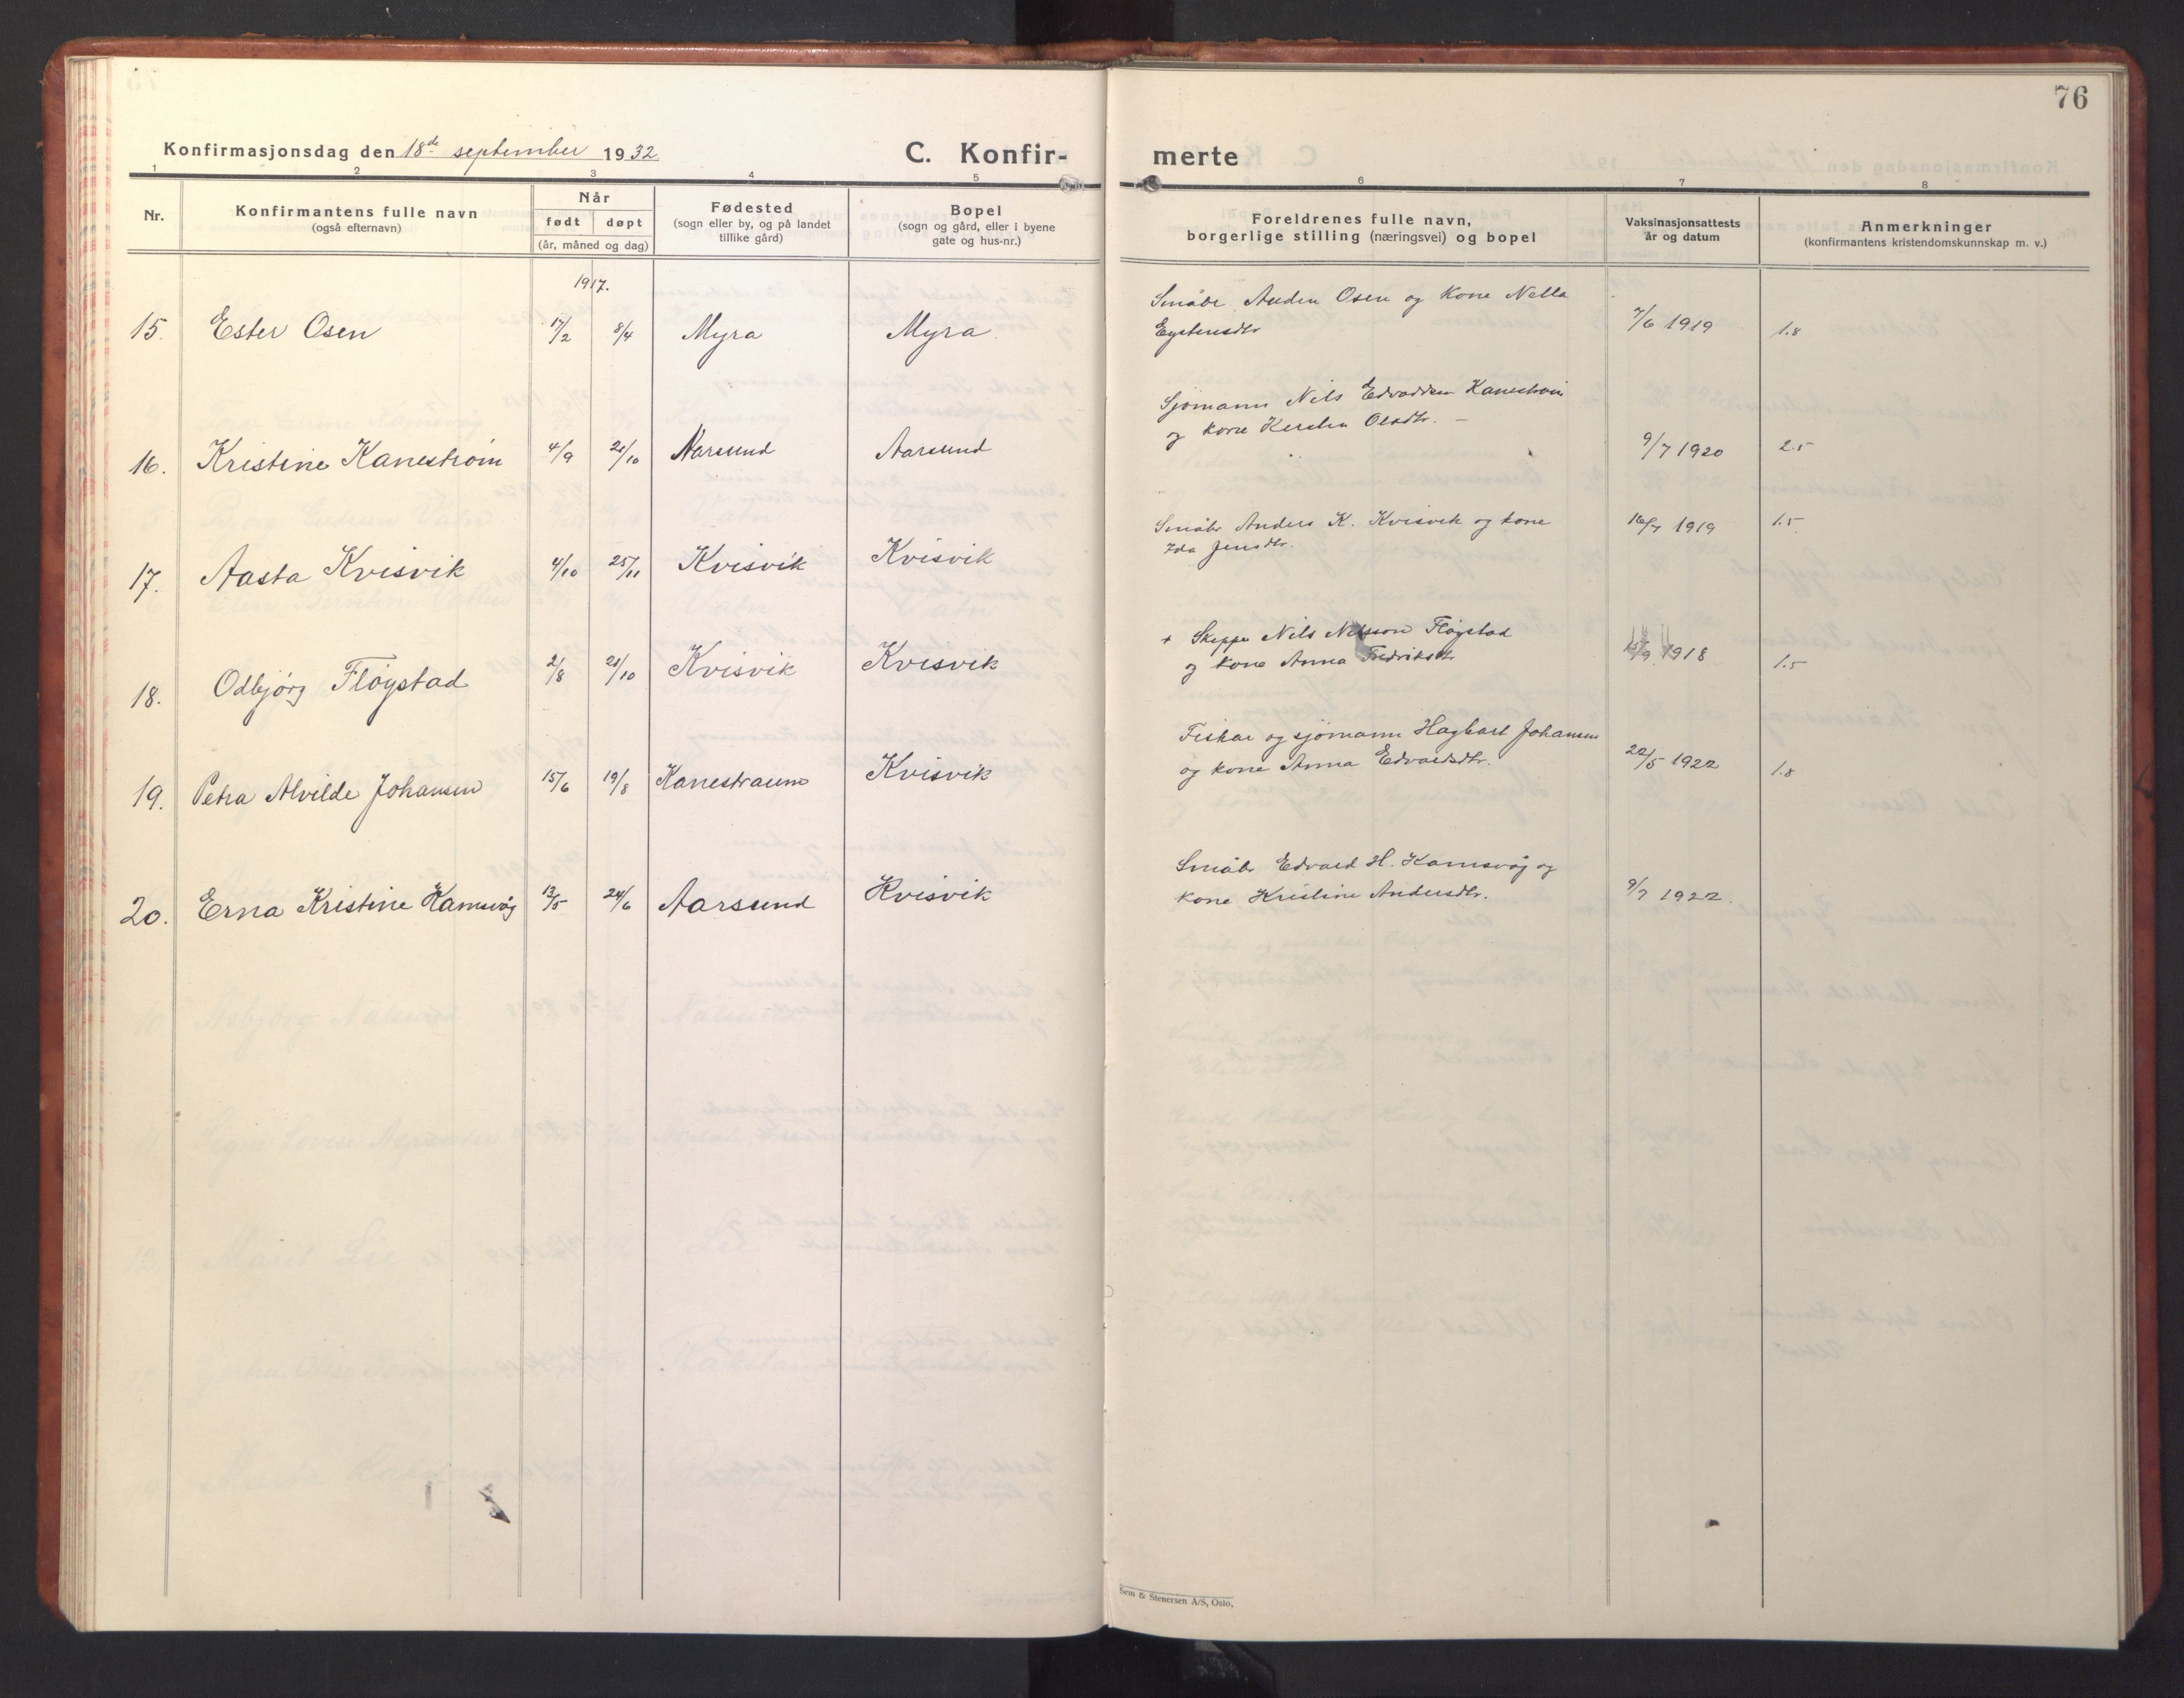 76
Konfirmasjonsdag den 18de september 1932
C. Konfir- merte
1 2 3 4 5 6 7 8
Nr.
Konfirmantens fulle navn
(også efternavn)
Når
født døpt
(år, måned og dag)
Fødested
(sogn eller by, og på landet
tillike gård)
Bopel
(sogn og gård, eller i byene
gate og hus-nr.)
Foreldrenes fulle navn,
borgerlige stilling (næringsvei) og bopel
Vaksinasjonsattests
år og datum
Anmerkninger
(konfirmantens kristendomskunnskap m. v.)
1917.
15. Ester Osen 17/2 8/4 Myra Myra.
Småbr Anden Osen og Kone Nella
Eystensdtr
7/6 1919 1.8
16. Kristine Kanestrøm 4/9 21/10 Aarsund Aarsund
Sjømann Nils Edvardsen Kanestrøm
og kone Kersten Olsdtr. –
9/7 1920 2.5
17. Aasta Kvisvik 4/10 25/11 Kvisvik Kvisvik
Småbr Anders K. Kvisvik og kone
Ida Jensdtr.
1919 1.5
18. Odbjørg Fløystad 2/8 21/10 Kvisvik Kvisvik
+ Skipper Nils Nilsson Fløystad
og kone Anna Fredriksdtr
15/9 1918 1.5
19. Petra Alvilde Johansen 15/6 19/8 Kanestraum Kvisvik
Fiskar og sjømann Hagbart Johansen
og kone Anna Edvardsdtr.
22/5 1922 1.8
20. Erna Kristine Kamsvåg 13/5 24/6 Aarsund Kvisvik
Småbr Edvard H. Kamsvåg og
kone Kristine Andersdtr.
9/7 1922.
Sem & Stenersen A/S, Oslo,